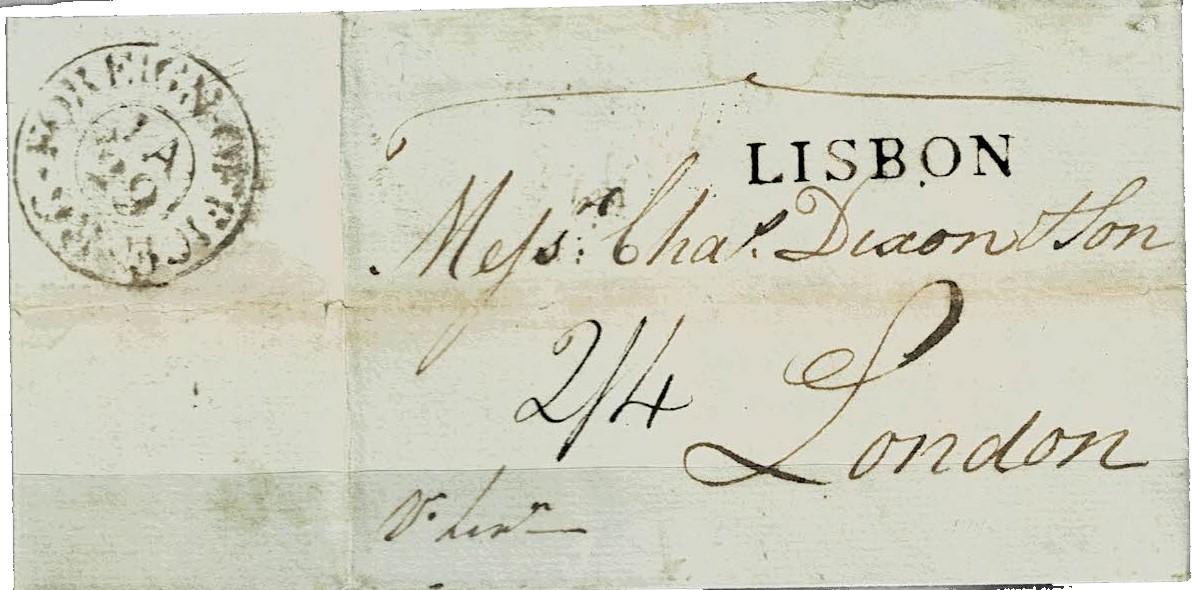 FOREIGN OFFICE
LISBON
Messrs. Chas. Dixon & Son
2/4
London